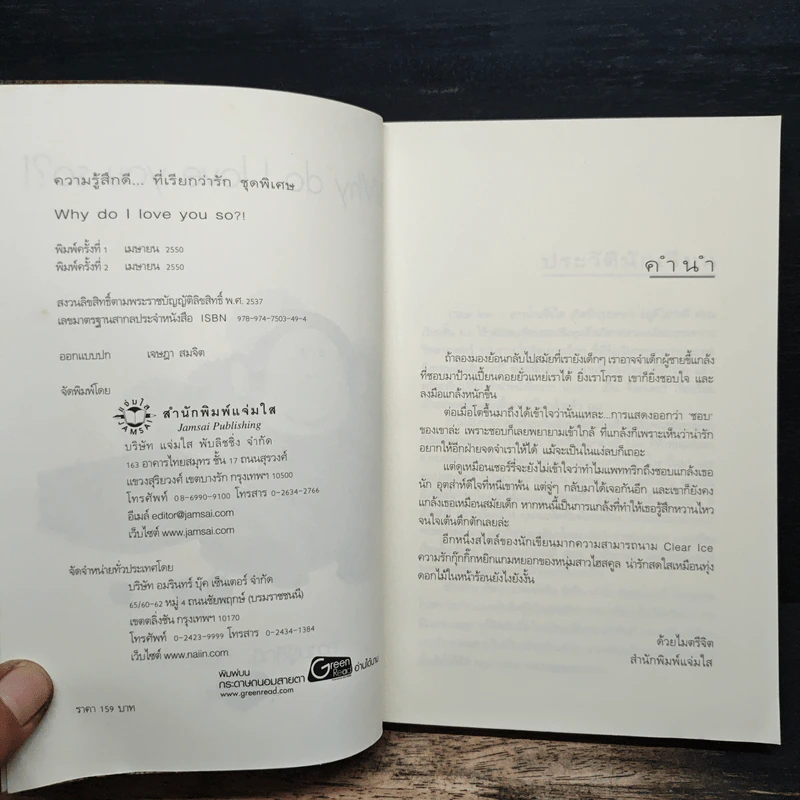 ความรู้สึกดี... ที่เรียกว่ารัก ชุดพิเศษ
Why do I love you so?!
พิมพ์ครั้งที่ 1 เมษายน 2550
พิมพ์ครั้งที่ 2 เมษายน 2550
สงวนลิขสิทธิ์ตามพระราชบัญญัติลิขสิทธิ์ พ.ศ. 2537
เลขมาตรฐานสากลประจำหนังสือ ISBN 978-974-7503-49-4
ออกแบบปก เจษฎา สมจิต
จัดพิมพ์โดย
สำนักพิมพ์แจ่มใส
Jamsai Publishing
บริษัท แจ่มใส พับลิชชิ่ง จำกัด
163 อาคารไทยสมุทร ชั้น 17 ถนนสุรวงศ์
แขวงสุริยวงศ์ เขตบางรัก กรุงเทพฯ 10500
โทรศัพท์ 08-6990-9100 โทรสาร 0-2634-2766
อีเมล์ editor@jamsai.com
เว็บไซต์ www.jamsai.com
จัดจำหน่ายทั่วประเทศโดย
บริษัท อมรินทร์ บุ๊ค เซ็นเตอร์ จำกัด
65/60-62 หมู่ 4 ถนนชัยพฤกษ์ (บรมราชชนนี)
เขตตลิ่งชัน กรุงเทพฯ 10170
โทรศัพท์ 0-2423-9999 โทรสาร 0-2434-1384
เว็บไซต์ www.naiin.com
พิมพ์บน
กระดาษถนอมสายตา
www.greenread.com
Green Read อ่านได้นาน
ราคา 159 บาท
คำนำ
ถ้าลองมองย้อนกลับไปสมัยที่เรายังเด็กๆ เราอาจจำเด็กผู้ชายขี้แกล้ง
ที่ชอบมาป้วนเปี้ยนคอยยั่วแหย่เราได้ ยิ่งเราโกรธ เขาก็ยิ่งชอบใจ และ
ลงมือแกล้งหนักขึ้น
ต่อเมื่อโตขึ้นมาถึงได้เข้าใจว่านั่นแหละ...การแสดงออกว่า 'ชอบ'
ของเขาล่ะ เพราะชอบก็เลยพยายามเข้าใกล้ ที่แกล้งก็เพราะเห็นว่าน่ารัก
อยากให้อีกฝ่ายจดจำเราให้ได้ แม้จะเป็นในแง่ลบก็เถอะ
แต่ดูเหมือนเชอร์รี่จะยังไม่เข้าใจว่าทำไมแพททริกถึงชอบแกล้งเธอ
นัก อุตส่าห์ดีใจที่หนีเขาพ้น แต่จู่ๆ กลับมาได้เจอกันอีก และเขาก็ยังคง
แกล้งเธอเหมือนสมัยเด็ก หากหนนี้เป็นการแกล้งที่ทำให้เธอรู้สึกหวานไหว
จนใจเต้นตึกตักเลยล่ะ
อีกหนึ่งสไตล์ของนักเขียนมากความสามารถนาม Clear Ice
ความรักกุ๊กกิ๊กหยิกแกมหยอกของหนุ่มสาวไฮสคูล น่ารักสดใสเหมือนทุ่ง
ดอกไม้ในหน้าร้อนยังไงยังงั้น
ด้วยไมตรีจิต
สำนักพิมพ์แจ่มใส